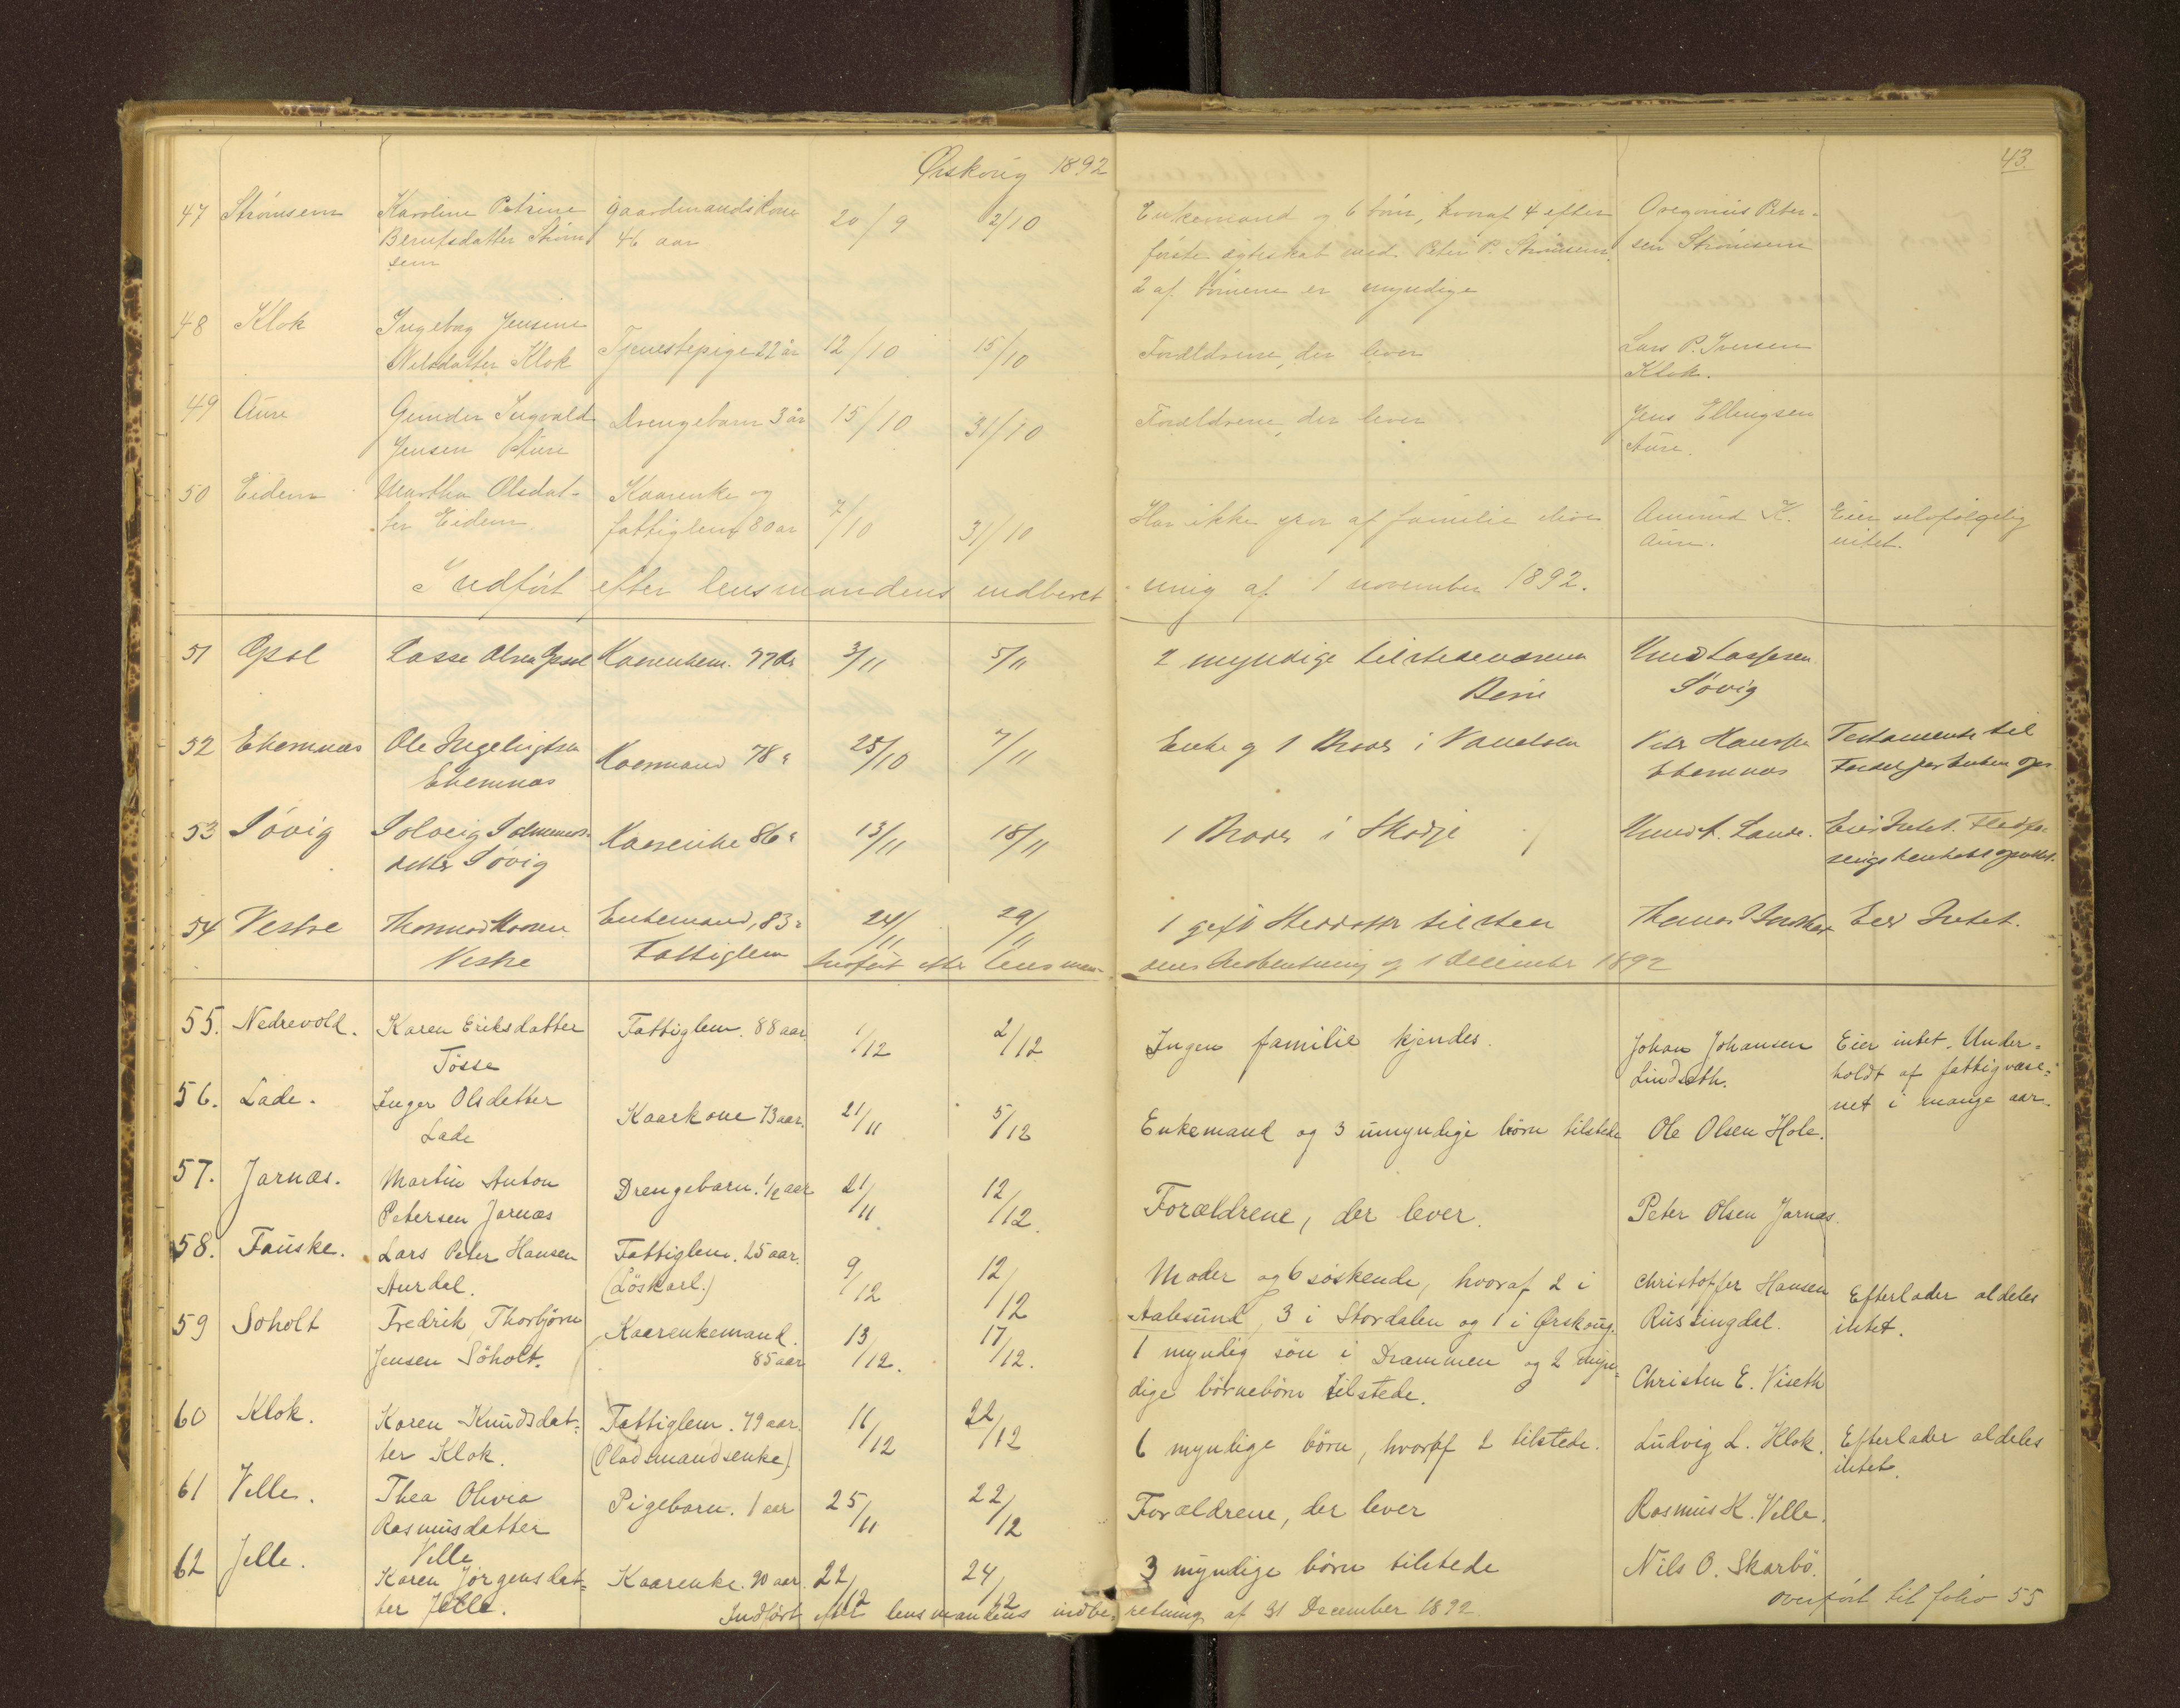 Ørskoug 1892
43.
47 Strømsem Karoline Petrine gaardmandskone 20/9 2/10 Enkemand og 6 børn, hvoraf 4 efter Gregorius Peter-
Berntsdatter Strøm 46 aar første ægteskab med Peter P. Strømsem. sen Strømsem
sem 2 af børnene er myndige
48 Klok Ingeborg Jensine
Nilsdatter Klok Tjenestepige 22 år 12/10 15/10 Forældrene, der lever Lars P. Iversen
Klok.
49 Aure Gunder Ingvald Drengebarn 3 år 15/10 31/10 Forældrene, der lever Jens Ellingsen
Jensen Aure Aure.
50 Eidem Martha Olsdat- Kaarenke og
ter Eidem. fattiglem 80 aar 7/10 31/10 Har ikke spor af familie Amund K. Eier selvfølgelig
Aure. intet.
Indført efter lensmandens indberet ning af 1 november 1892.
51 Opsal Lasse Olsen Opsal Kaarenkem. 77 Ar 3/11 5/11 2 myndige tilstedeværende Knud Lassesen
Børn Søvig
52 Ekornnæs Ole Ingebrigtsen Kaarmand 78 " 25/10 7/11 Enke og 1 Broder i Vanelven Peter Hansen Testamente til
Ekornnæs Ekornnæs Fordel for Enken opr.
53 Søvig Solveig Salmmons- Kaarenke 86 " 13/11 18/11 1 Broder i Skodje Knud A. Lande. Eier Intet.
datter Søvig
54 Vestre Thomas Knudsen Enkemand, 83 " 24/11 29/11 1 gift Steddatter tilstede Thomas Eier Intet.
Vestre Fattiglem Indført efter lensman- dens Indberetning af 1 december 1892
55. Nedrevold. Karen Eriksdatter Fattiglem. 88 aar. 1/12 2/12 Ingen familie kjendes. Johan Johansen Eier intet. Under-
Tøsse Lindseth. holdt af fattigvæse-
net i mange aar.
56. Lade. Inger Olsdatter Kaarkone 73 aar. 21/11 5/12 Enkemand og 3 umyndige børn tilstede Ole Olsen Hole.
Lade
57. Jarnæs. Martin Anton Drengebarn. 1/2 aar 21/11 12/12. Forældrene, der lever. Peter Olsen Jarnæs.
Petersen Jarnæs
58. Fauske. Lars Peter Hansen Fattiglem. 25 aar. 9/12 12/12 Moder og 6 søskende, hvoraf 2 i Christoffer Hansen Efterlader aldeles
Aurdal. (Løskarl.) Aalesund, 3 i Stordalen og 1 i Ørskoug. Rüstingdal. intet.
59 Søholt Fredrik Thorbjørn Kaarenkemand. 13/12. 17/12. 1 myndig søn i Drammen og 2 myn-
Jensen Søholt. 85 aar dige børnebørn tilstede. Christen E. Viseth
60 Klok. Karen Knudsdat- Fattiglem. 79 aar. 11/12 22/12 6 myndige børn, hvoraf 2 tilstede. Ludvig L. Klok. Efterlader aldeles
ter Klok. (Pladsmandsenke) intet.
61 Velle. Thea Olivia Pigebarn. 1 aar 25/11 22/12 Forældrene, der lever Rasmus K. Velle.
Rasmusdatter
Velle
62 Jelle. Karen Jørgensdat- Kaarenke. 90 aar. 22/12 24/12 3 myndige børn tilstede Nils O. Skarbø.
ter Jelle. Indført efter lensmandens indbe- retning af 31 December 1892. overført til folio 55